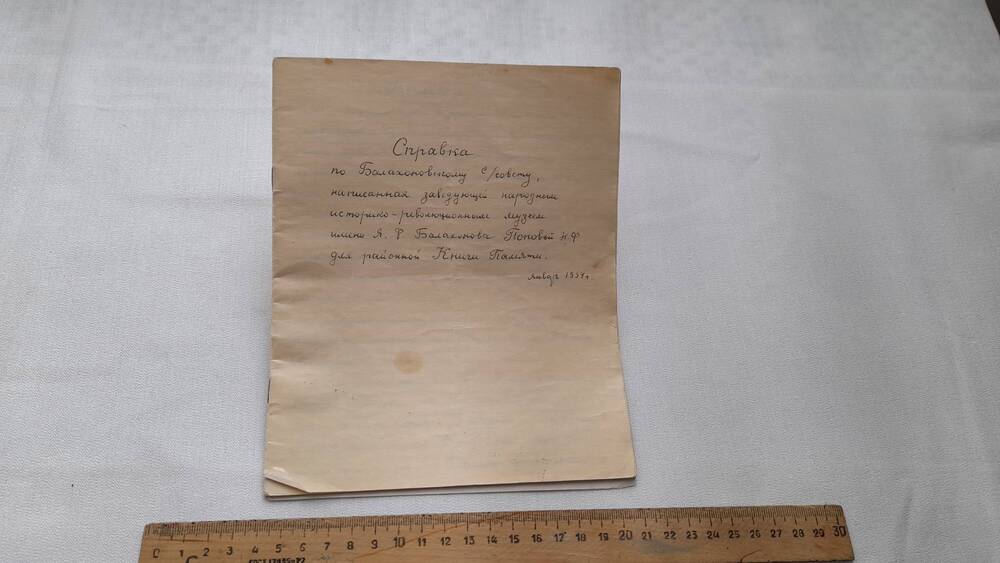 Справка
по Балахоновскому с/совету,
написанная заведующей народным
историко-революционным музеем
имени Я. Ф. Балахонова Поповой Н.Ф
для районной Книги Памяти.
январь 199 г.
0 1 2 3 4 5 6 7 8 9 10 11 12 13 14 15 16 17 18 19 20 21 22 23 24 25 26 27 28 29 30
ГОСТ 17435-72